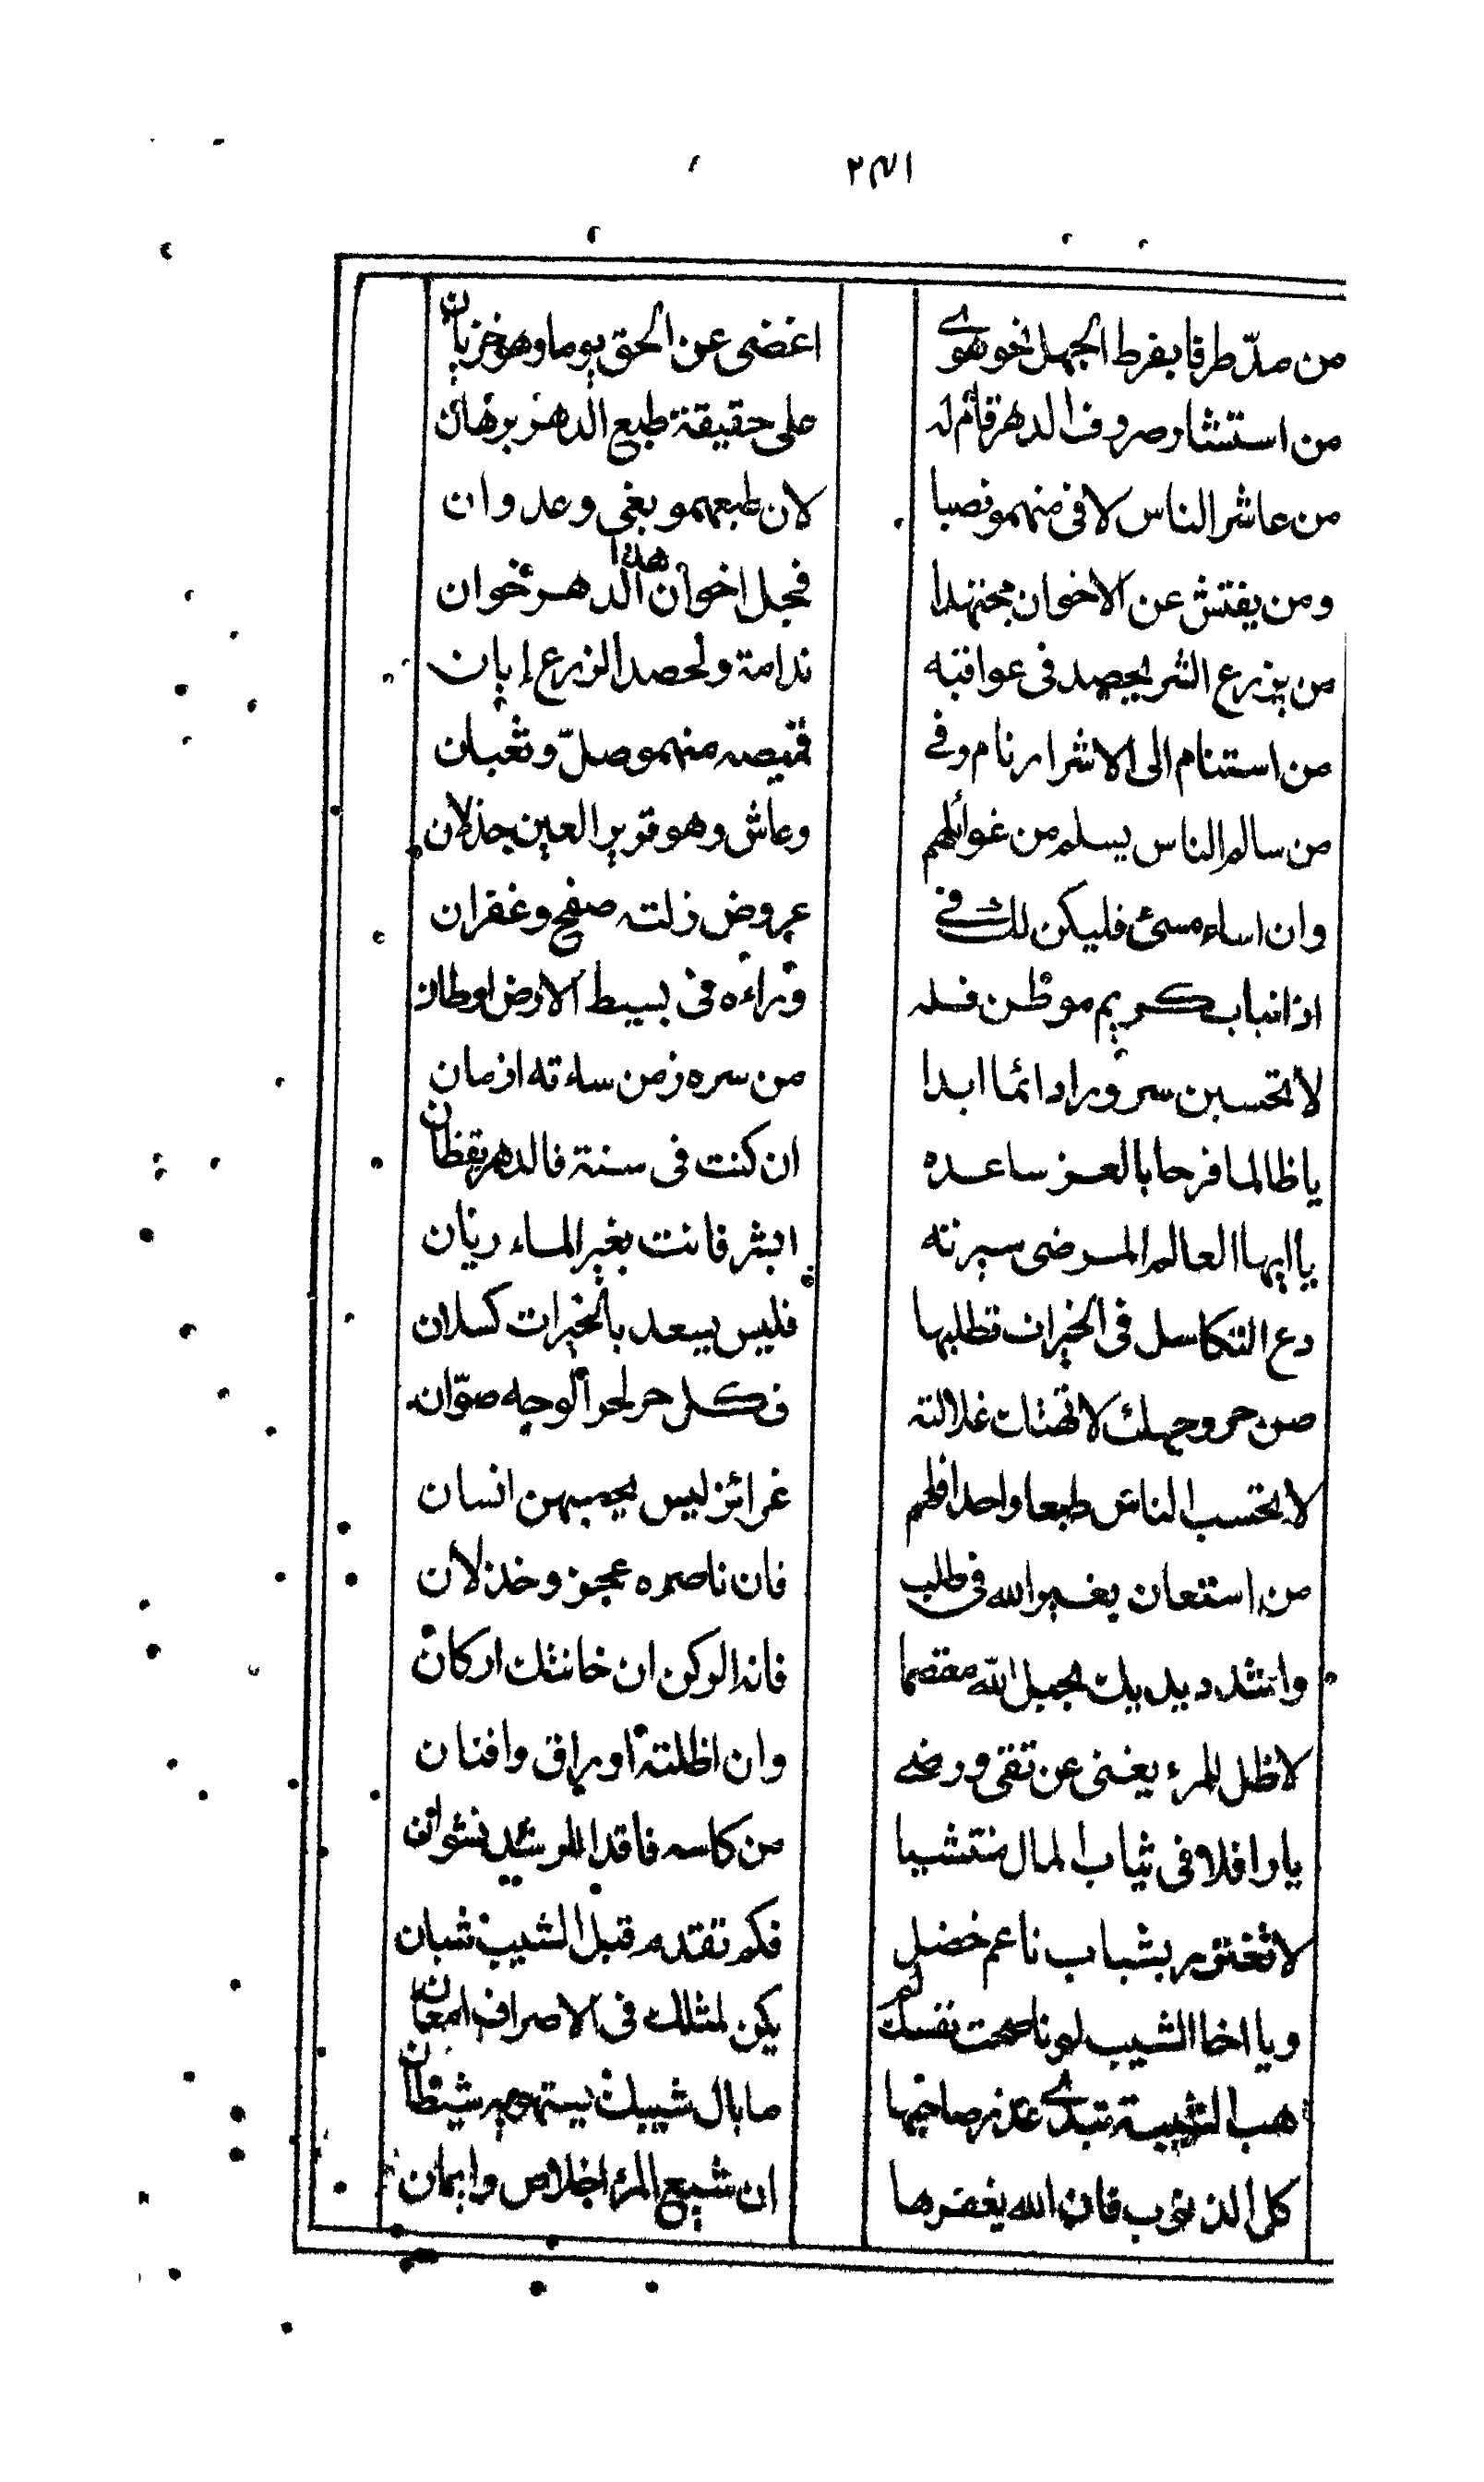 ٢٤١
من مدّ طرفا بفرط الجهل نحو هوى اغضى عن الحق يوما وهو خزيان
من استشار صروف الدهر قام له على حقيقة طبع الدهر برهان
من عاشر الناس لاقى منهمو نصبا لان طبعهمو بغى وعدوان
ومن يفتش عن الاخوان مجتهدا فجل اخوان هذا الدهر خوان
من يزرع الشر يحصد فى عواقبه ندامة ولحصد الزرع إبان
من استنام الى الاشرار نام وفى قميصه منهمو صلّ وثعبان
من سالم الناس يسلم من غوائلهم وعاش وهو قرير العين جذلان
وان اساء مسئ فليكن لك فى عروض زلته صفح وغفران
اذا نباب كريم موطن فله وراءه فى بسيط الارض اوطان
لا تحسبن سرورا دائما ابدا من سره زمن ساءته ازمان
يا ظالما فرحا بالعز ساعده ان كنت فى سنة فالدهر يقظان
يا ايها العالم المرضى سيرته ابشر فانت بغير الماء ريان
دع التكاسل فى الخيرات تطلبها فليس يسعد بالخيرات كسلان
صن حر وجهك لا تهتك غلالته فكل حر لحر الوجه صوّان
لا تحسب الناس طبعا واحدا فلهم غرائز ليس يحصيهن انسان
من استعان بغير الله فى طلب فان ناصره عجز وخذلان
واشدد يديك بحبل الله معتصما فانه الركن ان خانتك اركان
لا ظل للمرء يغنى عن تقى ورضى وان اظلته اوراق وافنان
يا رافلا فى ثياب المال منتشيا من كاسه فاقد الرشد نشوان
لا تغترر بشباب ناعم خضل فكم تقدم قبل الشيب شبان
ويا اخا الشيب لو ناصحت نفسك لم يكن لمثلك فى الاصراف امعان
هب الشبيبة تبدى عذر صاحبها ما بال شيبك يستهويه شيطان
كل الذنوب فان الله يغفرها ان شيع المرء اخلاص وايمان